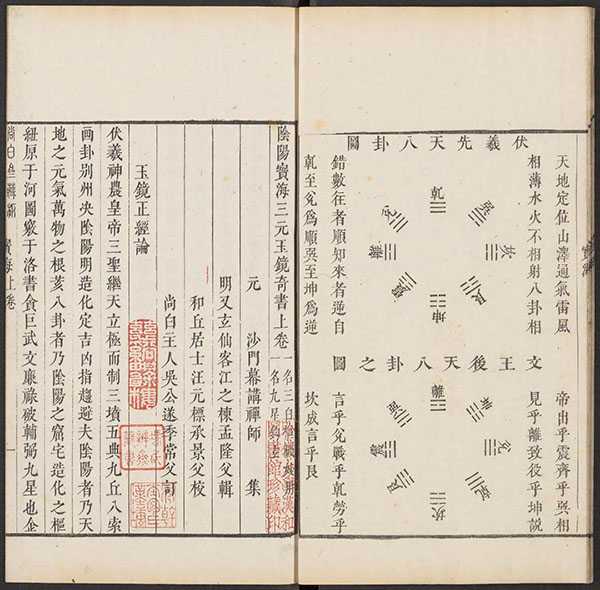 伏羲先天八卦圖
天地定位山澤通氣雷風
相薄水火不相射八卦相
乾
巽
坎
艮
坤
震
離
兌
錯數往者順知來者逆自
乾至兌爲順巽至坤爲逆
文王後天八卦之圖
帝出乎震齊乎巽相
見乎離致役乎坤說
離
坤
兌
乾
坎
艮
震
巽
言乎兌戰乎乾勞乎
坎成言乎艮
陰陽寶海三元玉鏡奇書上卷
一名三白
一名九星
元 沙門幕講禪師 集
明又玄仙客江之棟孟隆父輯
和丘居士汪元標承景父校
尚白主人吳公遂季常父訂
玉鏡正經論
伏羲神農皇帝三聖繼天立極而制三墳五典九丘八索
画卦別州央陰陽明造化定吉凶指趨避夫陰陽者乃天
地之元氣萬物之根荄八卦者乃陰陽之窟宅造化之樞
紐原于河圖竅于洛書貪巨武文廉祿破輔弼九星也企
寶海上卷 一